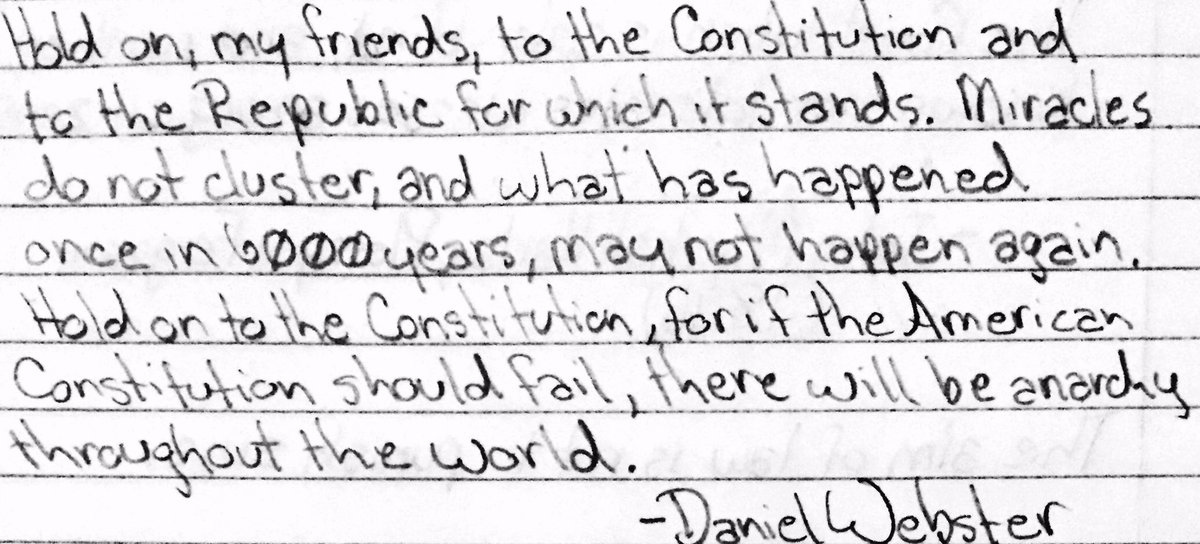 Hold on, my friends, to the Constitution and
to the Republic for which it stands. Miracles
do not cluster, and what has happened
once in 6000 years, may not happen again.
Hold on to the Constitution, for if the American
Constitution should fail, there will be anarchy
throughout the world.
-Daniel Webster